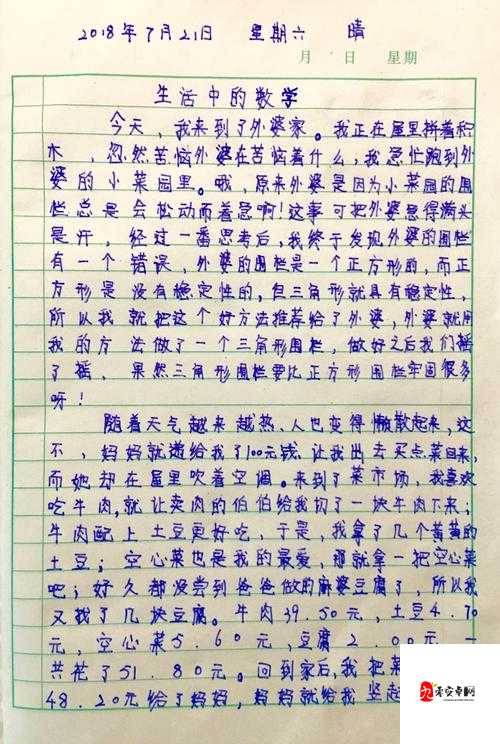 2018年7月21日 星期六 晴
月 日 星期
生活中的数学
今天，我来到了外婆家。我正在屋里拼着积
木，忽然苦恼外婆在苦恼着什么，我急忙跑到外
婆的小菜园里。哦，原来外婆是因为小菜园的围
栏总是会松动而着急啊！这事可把外婆急得满头
是汗，经过一番思考后，我终于发现外婆的围栏
有一个错误，外婆的围栏是一个正方形的，而正
方形是没有稳定性的，但三角形就具有稳定性，
所以我就把这个好方法推荐给了外婆，外婆就用
我的方法做了一个三角形围栏，做好之后我们摇
了摇，果然三角形围栏要比正方形围栏牢固很多
呀！
随着天气越来越热、人也变得懒散起来，这
不，妈妈就递给我了100元钱，让我出去买点菜回来，
而她却在屋里吹着空调。来到了菜市场，我喜欢
吃牛肉，就让卖肉的伯伯给我切了一块牛肉下来；
牛肉配上土豆更好吃，于是，我拿了几个黄黄的
土豆；空心菜也是我的最爱，那就拿一把空心菜
吧；好久都没尝到爸爸做的麻婆豆腐了，所以我
又找了几块豆腐。牛肉39.50元，土豆4.70
元，空心菜5.60元，豆腐2.00元，一
共花了51.80元。回到家后，我把菜
48.20元给了妈妈，妈妈就给我竖起
九零安卓网